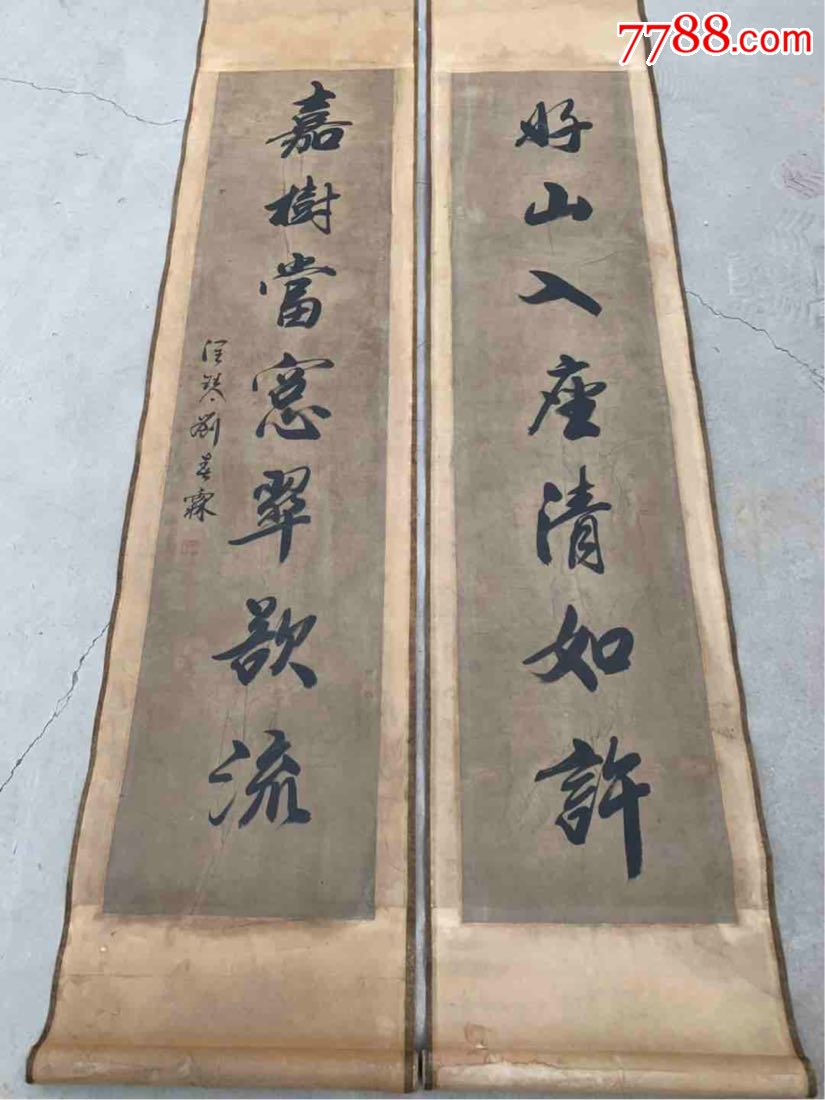 7788.com
好山入座清如許
嘉樹當窓翠欲流
潤琴劉春霖